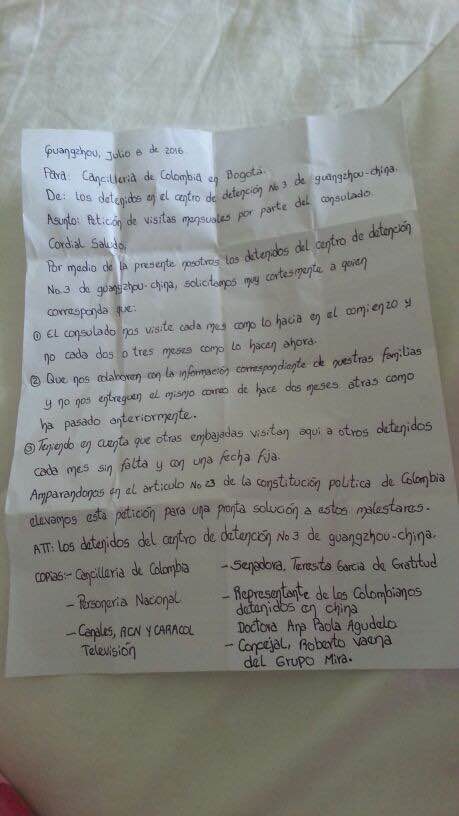 Guangzhou, Julio 8 de 2016
Para: Cancilleria de Colombia en Bogotá.
De: Los detenidos en el centro de detención No 3 de guangzhou-china.
Asunto: Petición de visitas mensuales por parte del consulado.
Cordial Saludo,
Por medio de la presente nosotros los detenidos del centro de detención
No.3 de guangzhou-china, solicitamos muy cortesmente a quien
corresponda que:
① El consulado nos visite cada mes como lo hacia en el comienzo y
no cada dos o tres meses como lo hacen ahora.
② Que nos colaboren con la información correspondiente de nuestras familias
y no nos entreguen el mismo correo de hace dos meses atras como
ha pasado anteriormente.
③ Teniendo en cuenta que otras embajadas visitan aqui a otros detenidos
cada mes sin falta y con una fecha fija.
Amparandonos en el articulo No 23 de la constitución politica de Colombia
elevamos esta petición para una pronta solución a estos malestares.
ATT: Los detenidos del centro de detención No 3 de guangzhou-china.
COPIAS:- Cancilleria de Colombia
- Personeria Nacional
- Canales, RCN Y CARACOL
Televisión
- Senadora, Teresita Garcia de Gratitud
- Representante de los Colombianos
detenidos en china
Doctora Ana Paola Agudelo
- Concejal, Roberto
del GRUPO Mira.